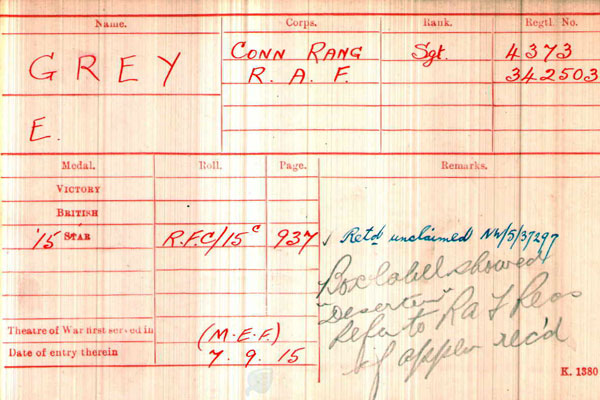 Name. Corps. Rank. Regtl. No.
GREY CONN RANG Sgt. 4373
R.A.F. 342503
E.
Medal. Roll. Page. Remarks.
VICTORY
BRITISH
'15 STAR R.F.C/15c 937 Retd unclaimed NW/5/37297
Box label showed
"Deserter"
Refer to RAF Recs
if appln rec'd
Theatre of War first served in (M.E.F.)
Date of entry therein 7.9.15
K. 1380